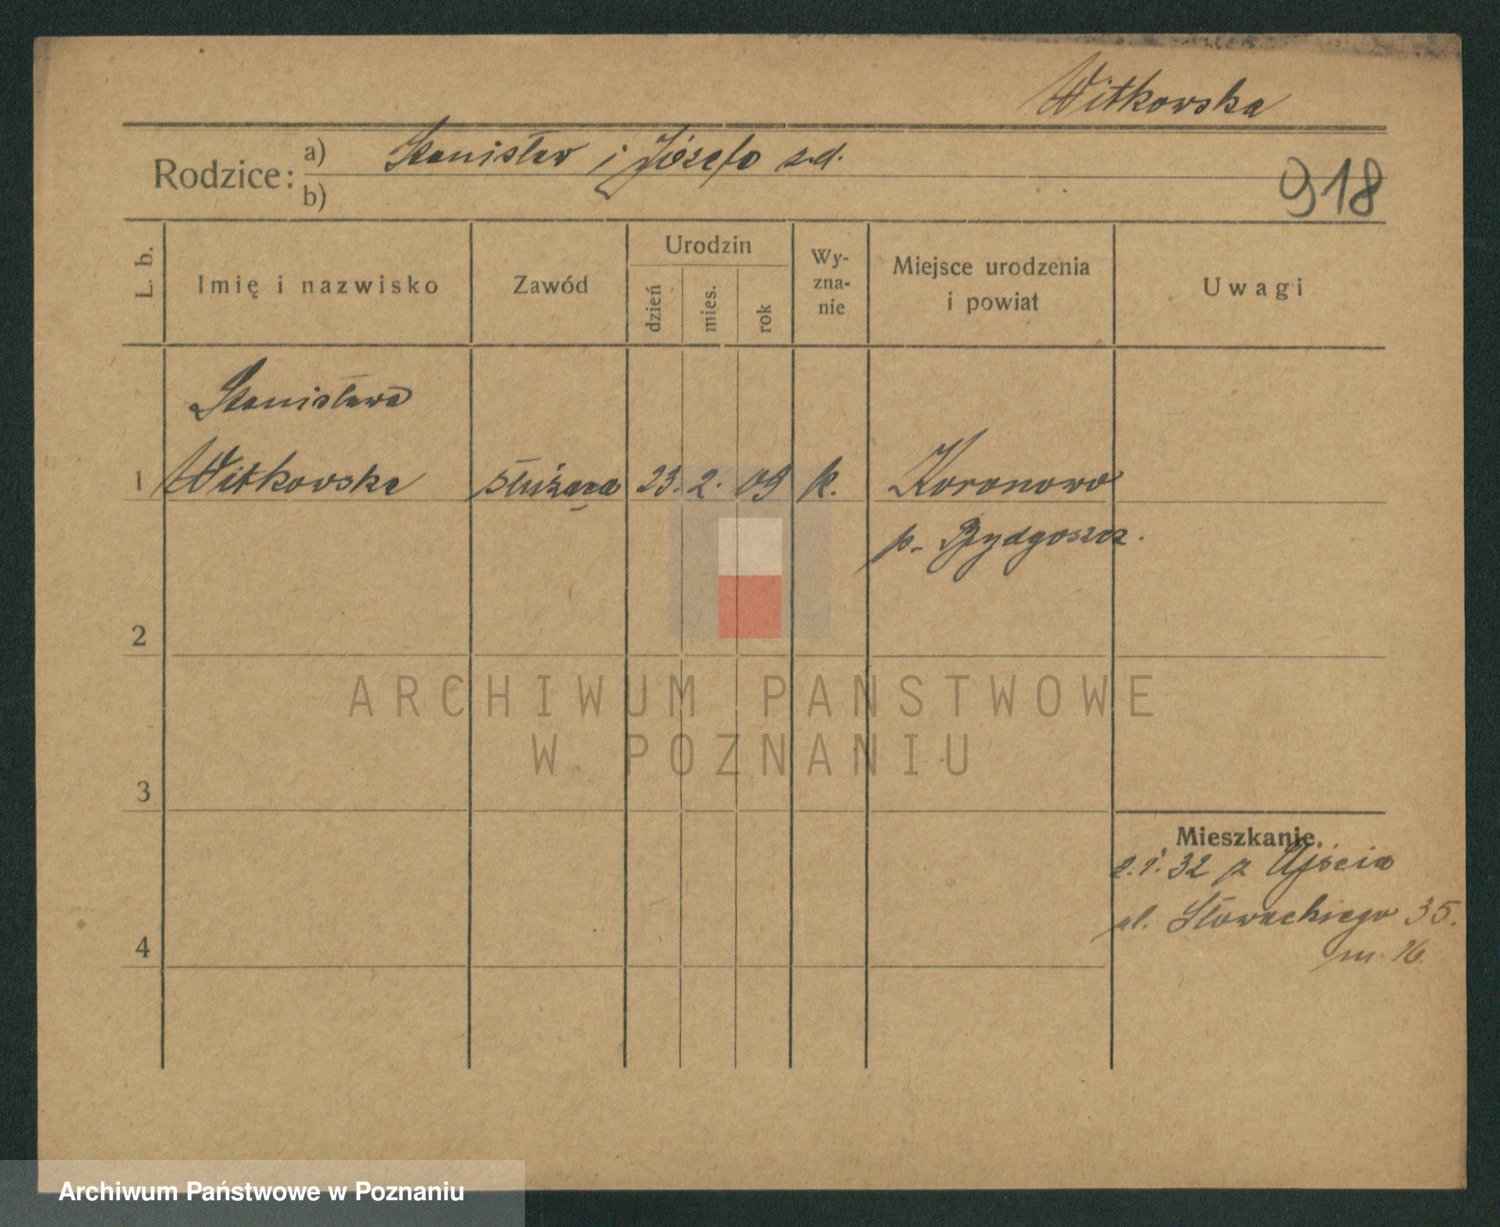 Witkowska
Rodzice:
a) Stanisław i Józefa z.d.
b)
918
L. b.
Imię i nazwisko
Zawód
Urodzin
dzień
mies.
rok
Wy-
zna-
nie
Miejsce urodzenia
i powiat
Uwagi
Stanisława
1 Witkowska służąca 23. 2. 09 k. Koronowo
p. Bydgoszcz.
2
ARCHIWUM PAŃSTWOWE
W POZNANIU
3
Mieszkanie.
2.1.32 z Ujścia
ul. Słowackiego 35.
4
m 16.
Archiwum Państwowe w Poznaniu